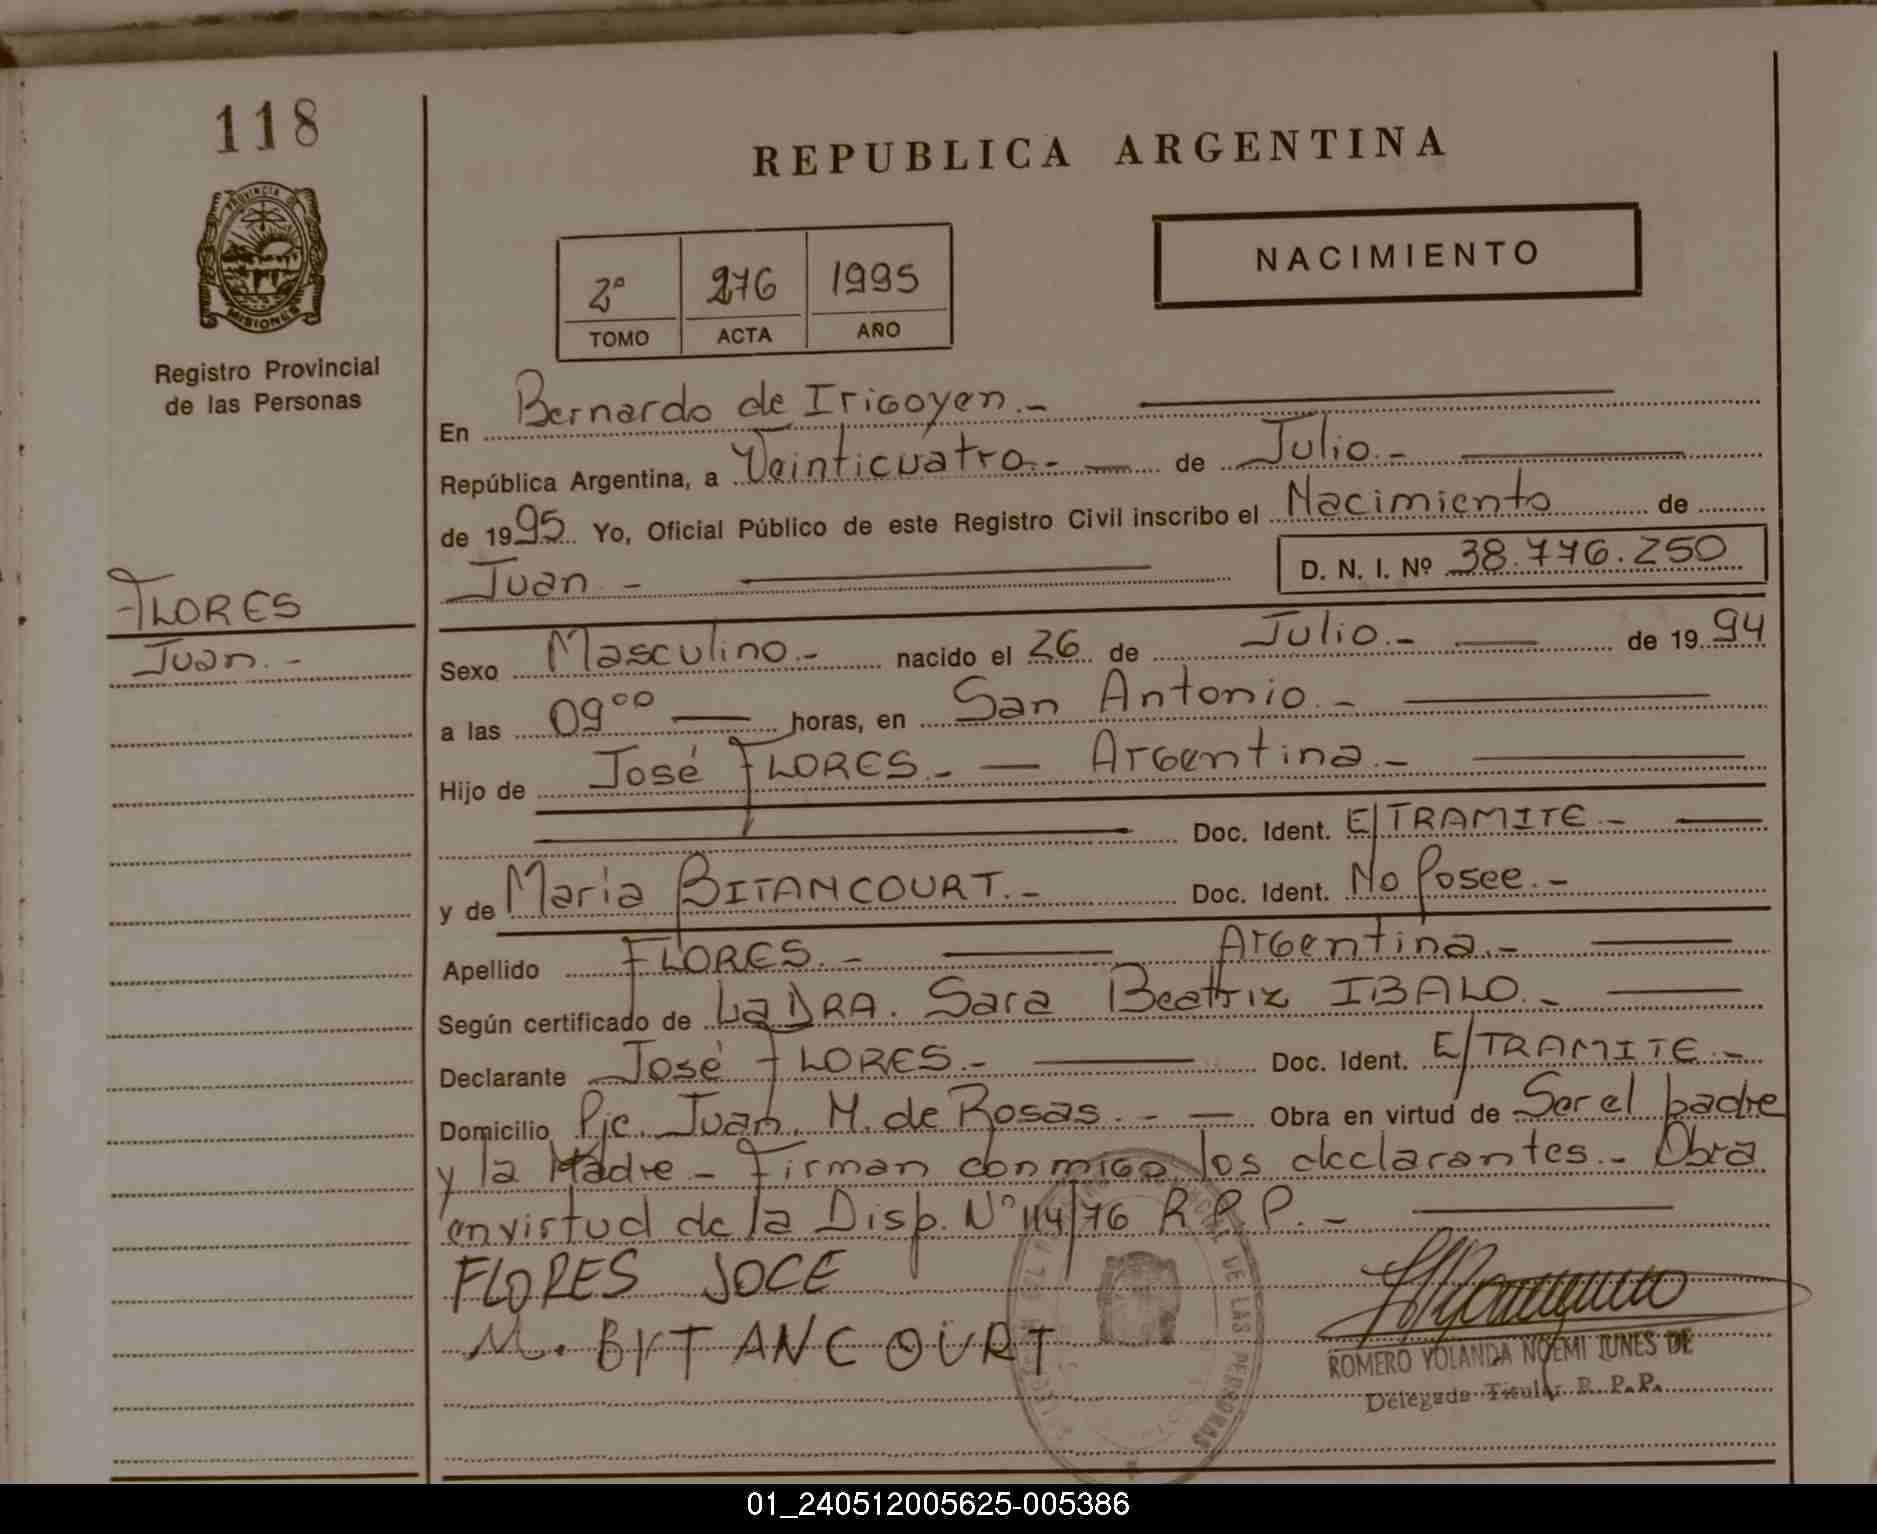 118
REPUBLICA ARGENTINA
PROVINCIA DE
MISIONES
Registro Provincial
de las Personas
NACIMIENTO
2º 276 1995
TOMO ACTA AÑO
En Bernardo de Irigoyen.-
República Argentina, a Veinticuatro.- de Julio.-
de 1995. Yo, Oficial Público de este Registro Civil inscribo el Nacimiento de
Juan.-
D. N. I. Nº 38.776.250
FLORES
Juan.-
Sexo Masculino.- nacido el 26 de Julio.- de 1994
a las 09⁰⁰ horas, en San Antonio.-
Hijo de José FLORES.- Argentina.-
Doc. Ident. E/TRAMITE.-
y de María BITANCOURT.- Doc. Ident. No Posee.-
Apellido FLORES.- Argentina.-
Según certificado de La DRA. Sara Beatriz IBALO.-
Declarante José FLORES.- Doc. Ident. E/TRAMITE.-
Domicilio Pje. Juan M. de Rosas.- Obra en virtud de Ser el padre
y la Madre.- Firman conmigo los declarantes.- Obra
en virtud de la Disp. Nº 114/76 R.P.P.-
FLORES JOCE
M. BYTANCOURT
DE LAS PERSONAS
ROMERO YOLANDA NOEMI JUNES DE
Delegada Titular R.P.P.
01_240512005625-005386